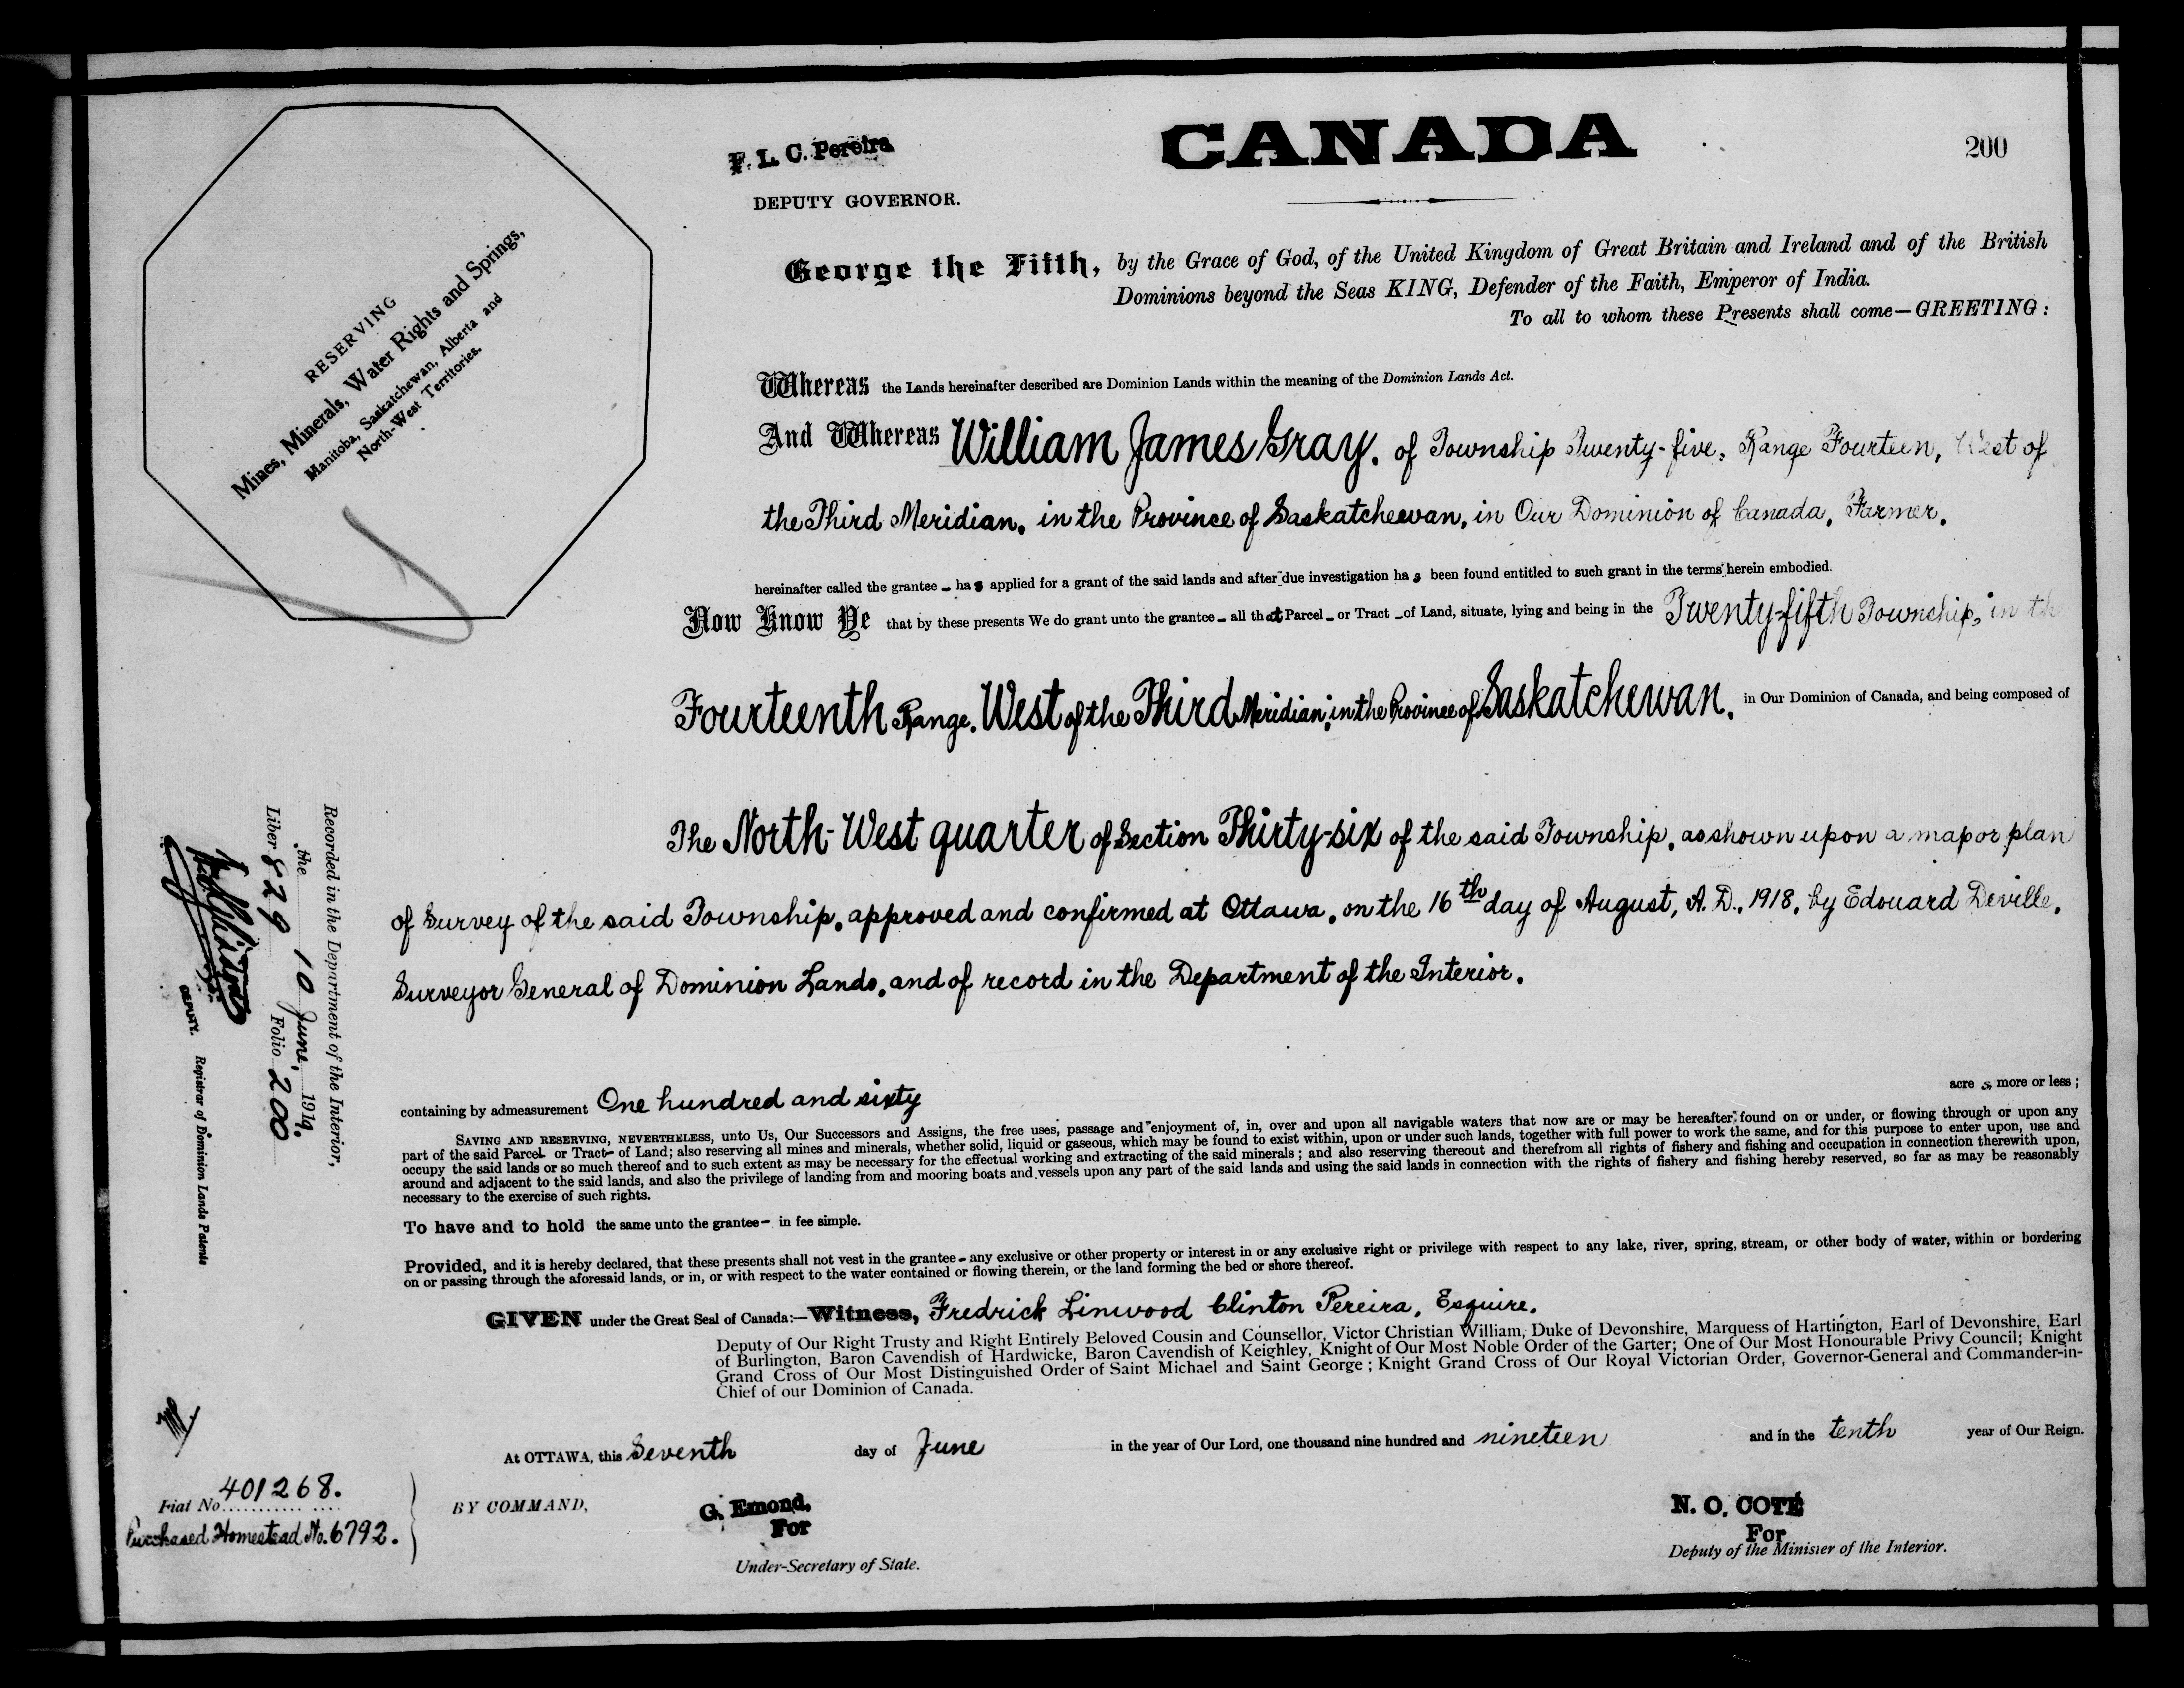 F. L. C. Pereira
DEPUTY GOVERNOR.
CANADA
200
RESERVING
Mines, Minerals, Water Rights and Springs,
Manitoba, Saskatchewan, Alberta and
North-West Territories.
George the Fifth, by the Grace of God, of the United Kingdom of Great Britain and Ireland and of the British
Dominions beyond the Seas KING, Defender of the Faith, Emperor of India.
To all to whom these Presents shall come—GREETING:
Whereas the Lands hereinafter described are Dominion Lands within the meaning of the Dominion Lands Act.
And Whereas William James Gray, of Township Twenty-five, Range Fourteen, West of
the Third Meridian, in the Province of Saskatchewan, in Our Dominion of Canada, Farmer,
hereinafter called the grantee - has applied for a grant of the said lands and after due investigation has been found entitled to such grant in the terms herein embodied.
Now Know Ye that by these presents We do grant unto the grantee - all that Parcel - or Tract - of Land, situate, lying and being in the Twenty-fifth Township, in th
Fourteenth Range, West of the Third Meridian, in the Province of Saskatchewan, in Our Dominion of Canada, and being composed of
The North-West quarter of Section Thirty-six of the said Township, as shown upon a map or plan
of Survey of the said Township, approved and confirmed at Ottawa, on the 16th day of August, A. D., 1918, by Edouard Deville,
Surveyor General of Dominion Lands, and of record in the Department of the Interior.
containing by admeasurement One hundred and sixty acres, more or less ;
SAVING AND RESERVING, NEVERTHELESS, unto Us, Our Successors and Assigns, the free uses, passage and enjoyment of, in, over and upon all navigable waters that now are or may be hereafter found on or under, or flowing through or upon any
part of the said Parcel- or Tract- of Land; also reserving all mines and minerals, whether solid, liquid or gaseous, which may be found to exist within, upon or under such lands, together with full power to work the same, and for this purpose to enter upon, use and
occupy the said lands or so much thereof and to such extent as may be necessary for the effectual working and extracting of the said minerals ; and also reserving thereout and therefrom all rights of fishery and fishing and occupation in connection therewith upon,
around and adjacent to the said lands, and also the privilege of landing from and mooring boats and vessels upon any part of the said lands and using the said lands in connection with the rights of fishery and fishing hereby reserved, so far as may be reasonably
necessary to the exercise of such rights.
To have and to hold the same unto the grantee - in fee simple.
Provided, and it is hereby declared, that these presents shall not vest in the grantee - any exclusive or other property or interest in or any exclusive right or privilege with respect to any lake, river, spring, stream, or other body of water, within or bordering
on or passing through the aforesaid lands, or in, or with respect to the water contained or flowing therein, or the land forming the bed or shore thereof.
GIVEN under the Great Seal of Canada:—Witness, Fredrick Linwood Clinton Pereira, Esquire,
Deputy of Our Right Trusty and Right Entirely Beloved Cousin and Counsellor, Victor Christian William, Duke of Devonshire, Marquess of Hartington, Earl of Devonshire, Earl
of Burlington, Baron Cavendish of Hardwicke, Baron Cavendish of Keighley, Knight of Our Most Noble Order of the Garter; One of Our Most Honourable Privy Council; Knight
Grand Cross of Our Most Distinguished Order of Saint Michael and Saint George ; Knight Grand Cross of Our Royal Victorian Order, Governor-General and Commander-in-
Chief of our Dominion of Canada.
At OTTAWA, this Seventh day of June in the year of Our Lord, one thousand nine hundred and nineteen and in the tenth year of Our Reign.
BY COMMAND,
G. Emond,
For
Under-Secretary of State.
N. O. COTÉ
For
Deputy of the Minister of the Interior.
Recorded in the Department of the Interior,
the 10 June, 1919.
Liber 829 Folio 200
DEPUTY. Registrar of Dominion Lands Patents
Fiat No 401268.
Purchased Homestead No. 6792.